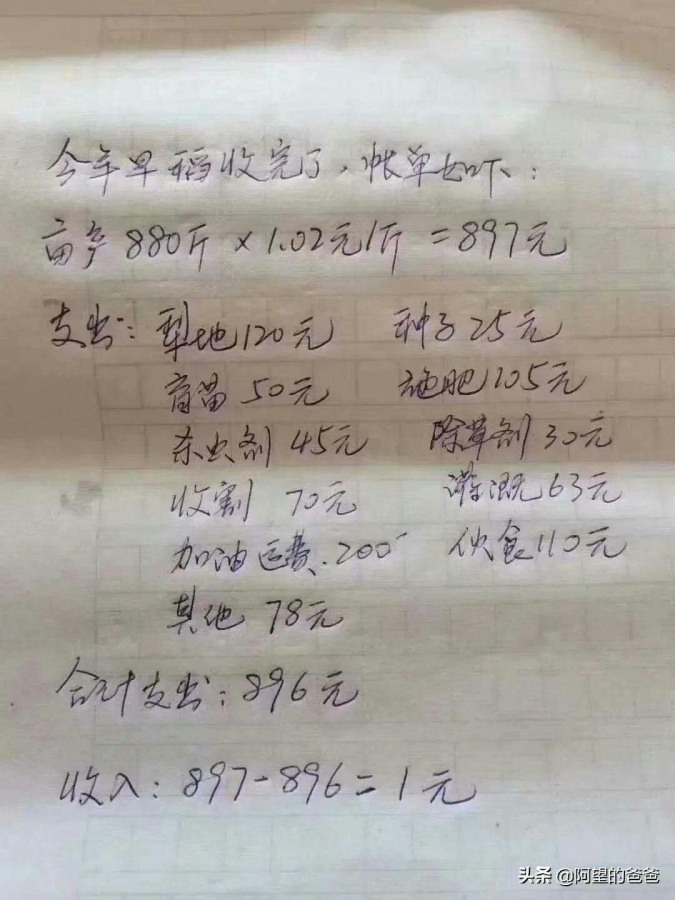 今年早稻收完了、帐单如下：
亩产880斤×1.02元/斤=897元
支出：犁地120元 种子25元
育苗50元 施肥105元
杀虫剂45元 除草剂30元
收割 70元 灌溉63元
加油运费.200 伙食110元
其他 78元
合计支出：896元
收入：897-896=1元
头条 @阿望的爸爸